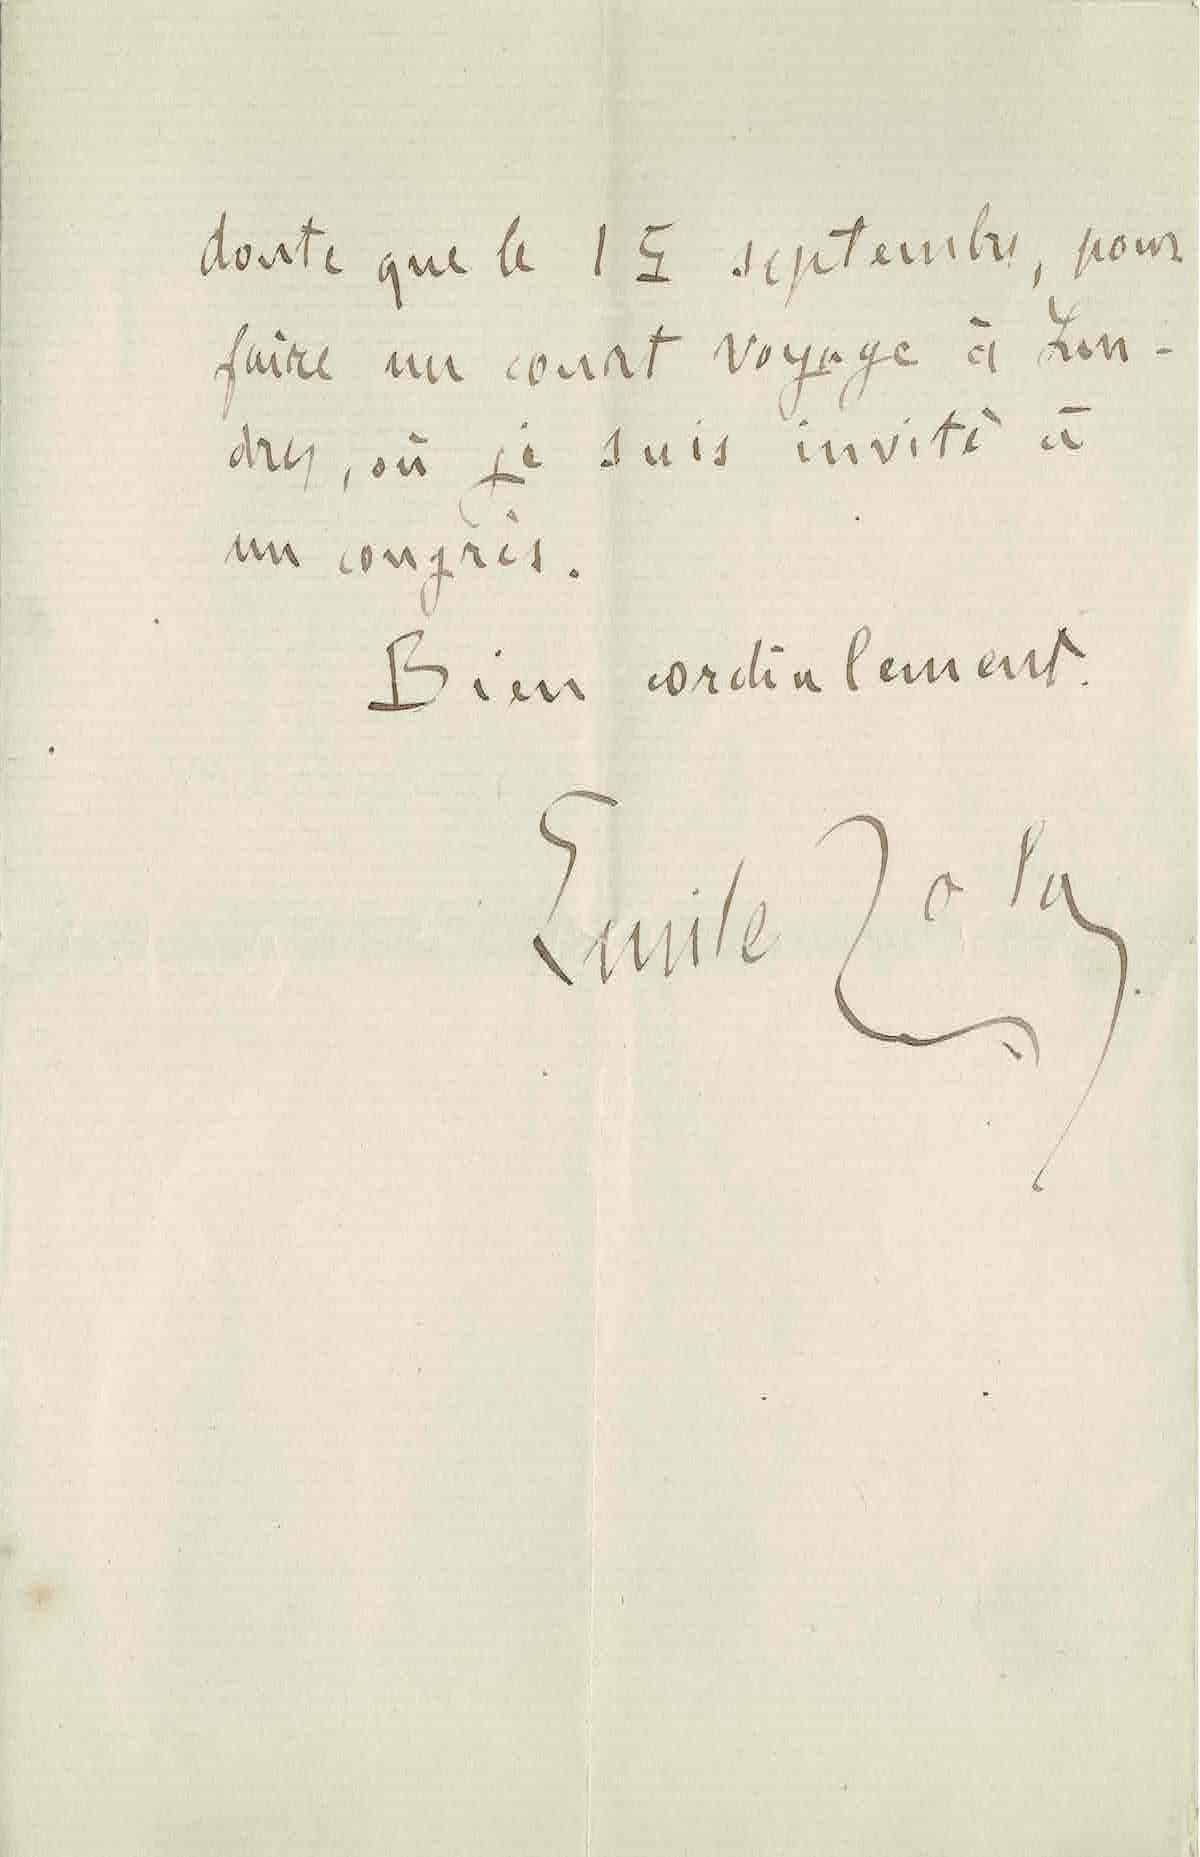 doute que le 15 septembre, pour
faire un court voyage à Lon-
dres, où je suis invité à
un congrès.
Bien cordialement.
Emile Zola